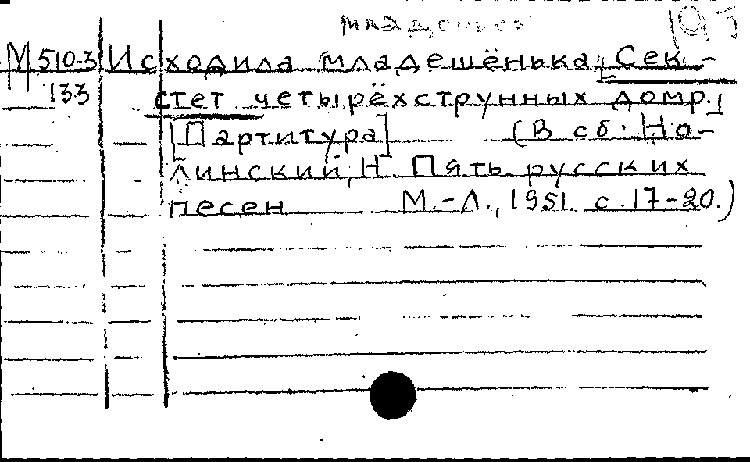 М 510-3 Исходила младешёнька. Сек-
133 стет четырёхструнных домр.
[Партитура] (В сб: Но-
линский, Н. Пять русских
песен М.-Л., 1951. с. 17-20.)